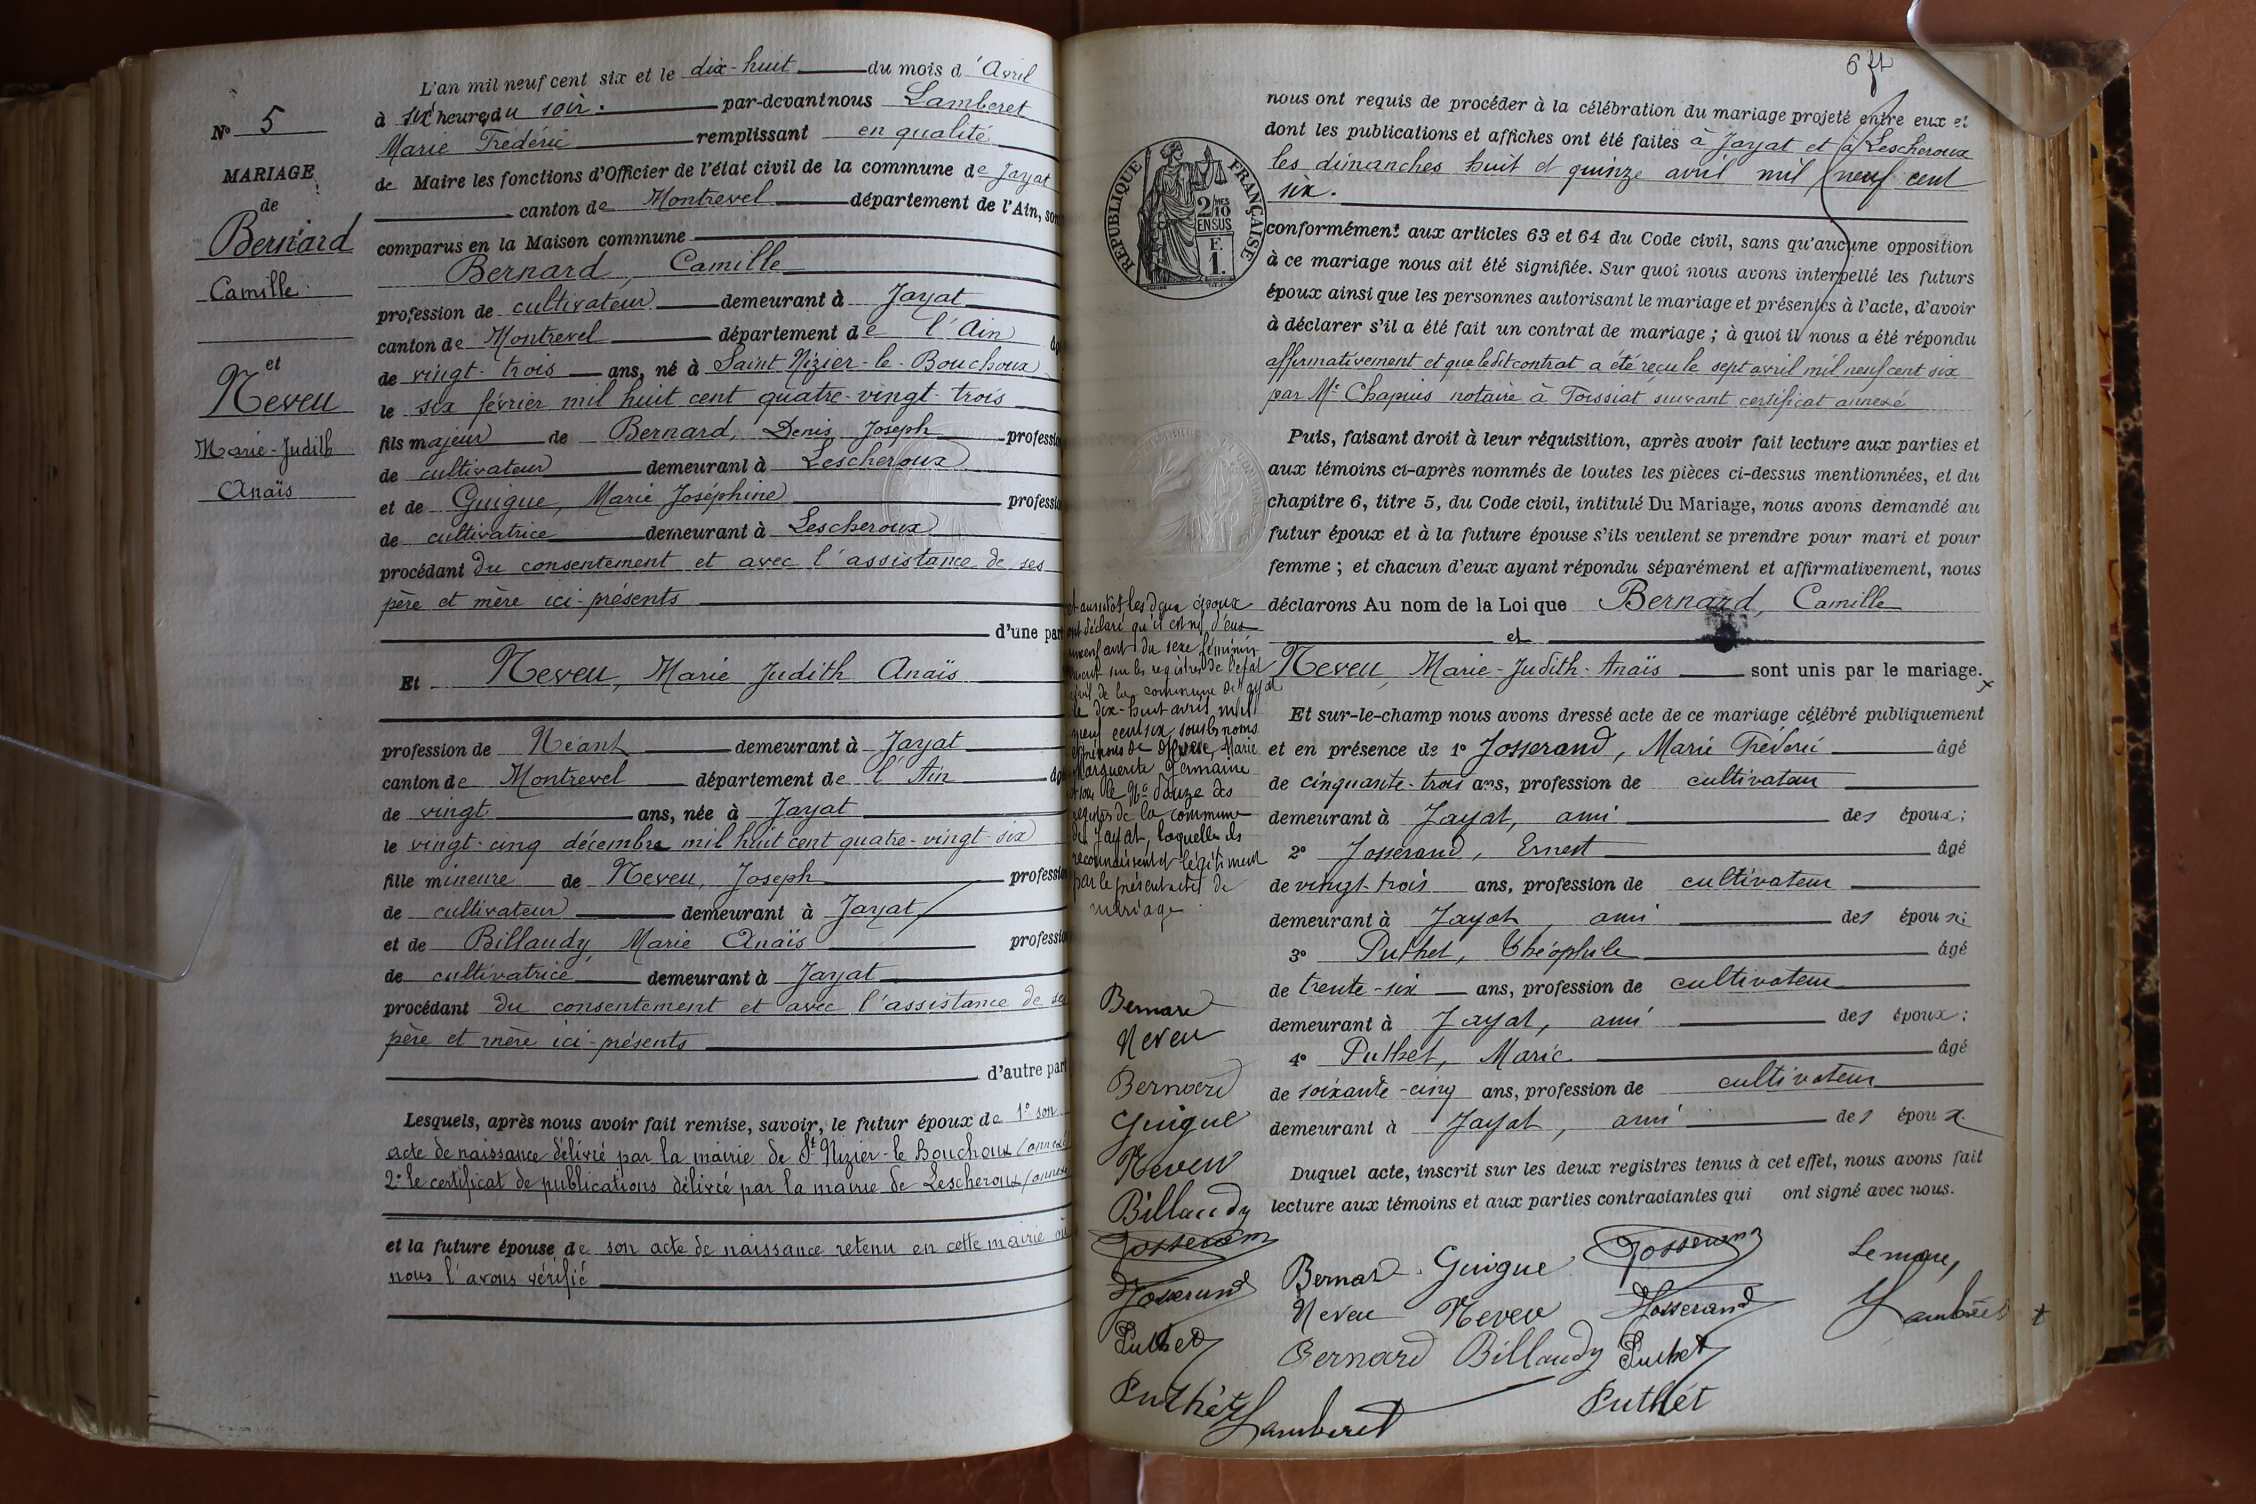 N° 5
MARIAGE
de
Bernard
Camille
et
Neveu
Marie-Judith
Anaïs
L'an mil neuf cent six et le dix-huit du mois d'Avril
à six heures du soir. par-devant nous Lamberet
Marie Frédéric remplissant en qualité
de Maire les fonctions d'Officier de l'état civil de la commune de Jayat
canton de Montrevel département de l'Ain, sont
comparus en la Maison commune
Bernard, Camille
profession de cultivateur demeurant à Jayat
canton de Montrevel département de l'Ain âgé
de vingt-trois ans, né à Saint Nizier-le-Bouchoux
le six février mil huit cent quatre-vingt-trois
fils majeur de Bernard, Denis Joseph profession
de cultivateur demeurant à Lescheroux
et de Guigue, Marie Joséphine profession
de cultivatrice demeurant à Lescheroux
procédant du consentement et avec l'assistance de ses
père et mère ici-présents
d'une part
Et Neveu, Marie Judith Anaïs
profession de Néant demeurant à Jayat
canton de Montrevel département de l'Ain âgé
de vingt ans, née à Jayat
le vingt-cinq décembre mil huit cent quatre-vingt-six
fille mineure de Neveu, Joseph profession
de cultivateur demeurant à Jayat
et de Billaudy Marie Anaïs profession
de cultivatrice demeurant à Jayat
procédant du consentement et avec l'assistance de ses
père et mère ici-présents
d'autre part
Lesquels, après nous avoir fait remise, savoir, le futur époux de 1° son
acte de naissance délivré par la mairie de St Nizier-le Bouchoux (annexé)
2° le certificat de publications délivré par la mairie de Lescheroux (annexé)
et la future épouse de son acte de naissance retenu en cette mairie où
nous l'avons vérifié
6
nous ont requis de procéder à la célébration du mariage projeté entre eux et
dont les publications et affiches ont été faites à Jayat et à Lescheroux
les dimanches huit et quinze avril mil neuf cent
six.
RÉPUBLIQUE FRANÇAISE
2/10 MES
EN SUS
F.
1.
conformément aux articles 63 et 64 du Code civil, sans qu'aucune opposition
à ce mariage nous ait été signifiée. Sur quoi nous avons interpellé les futurs
époux ainsi que les personnes autorisant le mariage et présentes à l'acte, d'avoir
à déclarer s'il a été fait un contrat de mariage ; à quoi il nous a été répondu
affirmativement et que ledit contrat a été reçu le sept avril mil neuf cent six
par Me Chapuis notaire à Foissiat suivant certificat annexé
Puis, faisant droit à leur réquisition, après avoir fait lecture aux parties et
aux témoins ci-après nommés de toutes les pièces ci-dessus mentionnées, et du
chapitre 6, titre 5, du Code civil, intitulé Du Mariage, nous avons demandé au
futur époux et à la future épouse s'ils veulent se prendre pour mari et pour
femme ; et chacun d'eux ayant répondu séparément et affirmativement, nous
déclarons Au nom de la Loi que Bernard, Camille
et
Neveu, Marie-Judith-Anaïs sont unis par le mariage. x
Et sur-le-champ nous avons dressé acte de ce mariage célébré publiquement
et en présence de 1° Josserand, Marie Frédéric âgé
de cinquante-trois ans, profession de cultivateur
demeurant à Jayat, ami des époux ;
2° Josserand, Ernest âgé
de vingt-trois ans, profession de cultivateur
demeurant à Jayat ami des époux ;
3° Puthet, Théophile âgé
de trente-six ans, profession de cultivateur
demeurant à Jayat, ami des époux ;
4° Puthet, Marie âgé
de soixante-cinq ans, profession de cultivateur
demeurant à Jayat, ami des époux
Duquel acte, inscrit sur les deux registres tenus à cet effet, nous avons fait
lecture aux témoins et aux parties contractantes qui ont signé avec nous.
et aussitôt les deux époux
ont déclaré qu'il est né d'eux
un enfant du sexe féminin
inscrit sur les registres de l'état
civil de la commune de Jayat
le dix-huit avril mil
neuf cent six, sous les noms
et prénoms de Neveu, Marie
Marguerite Germaine
et sous le N° douze des
registres de la commune
de Jayat, laquelle ils
reconnaissent et légitiment
par le présent acte de
mariage.
Bernard
Neveu
Bernard
Guigue
Neveu
Billaudy
Josserand
Josserand
Puthet
Puthét
Lamberet
Bernard Guigue Josserand Le maire,
Neveu Neveu Josserand Lamberet
Bernard Billaudy Puthet
Puthét